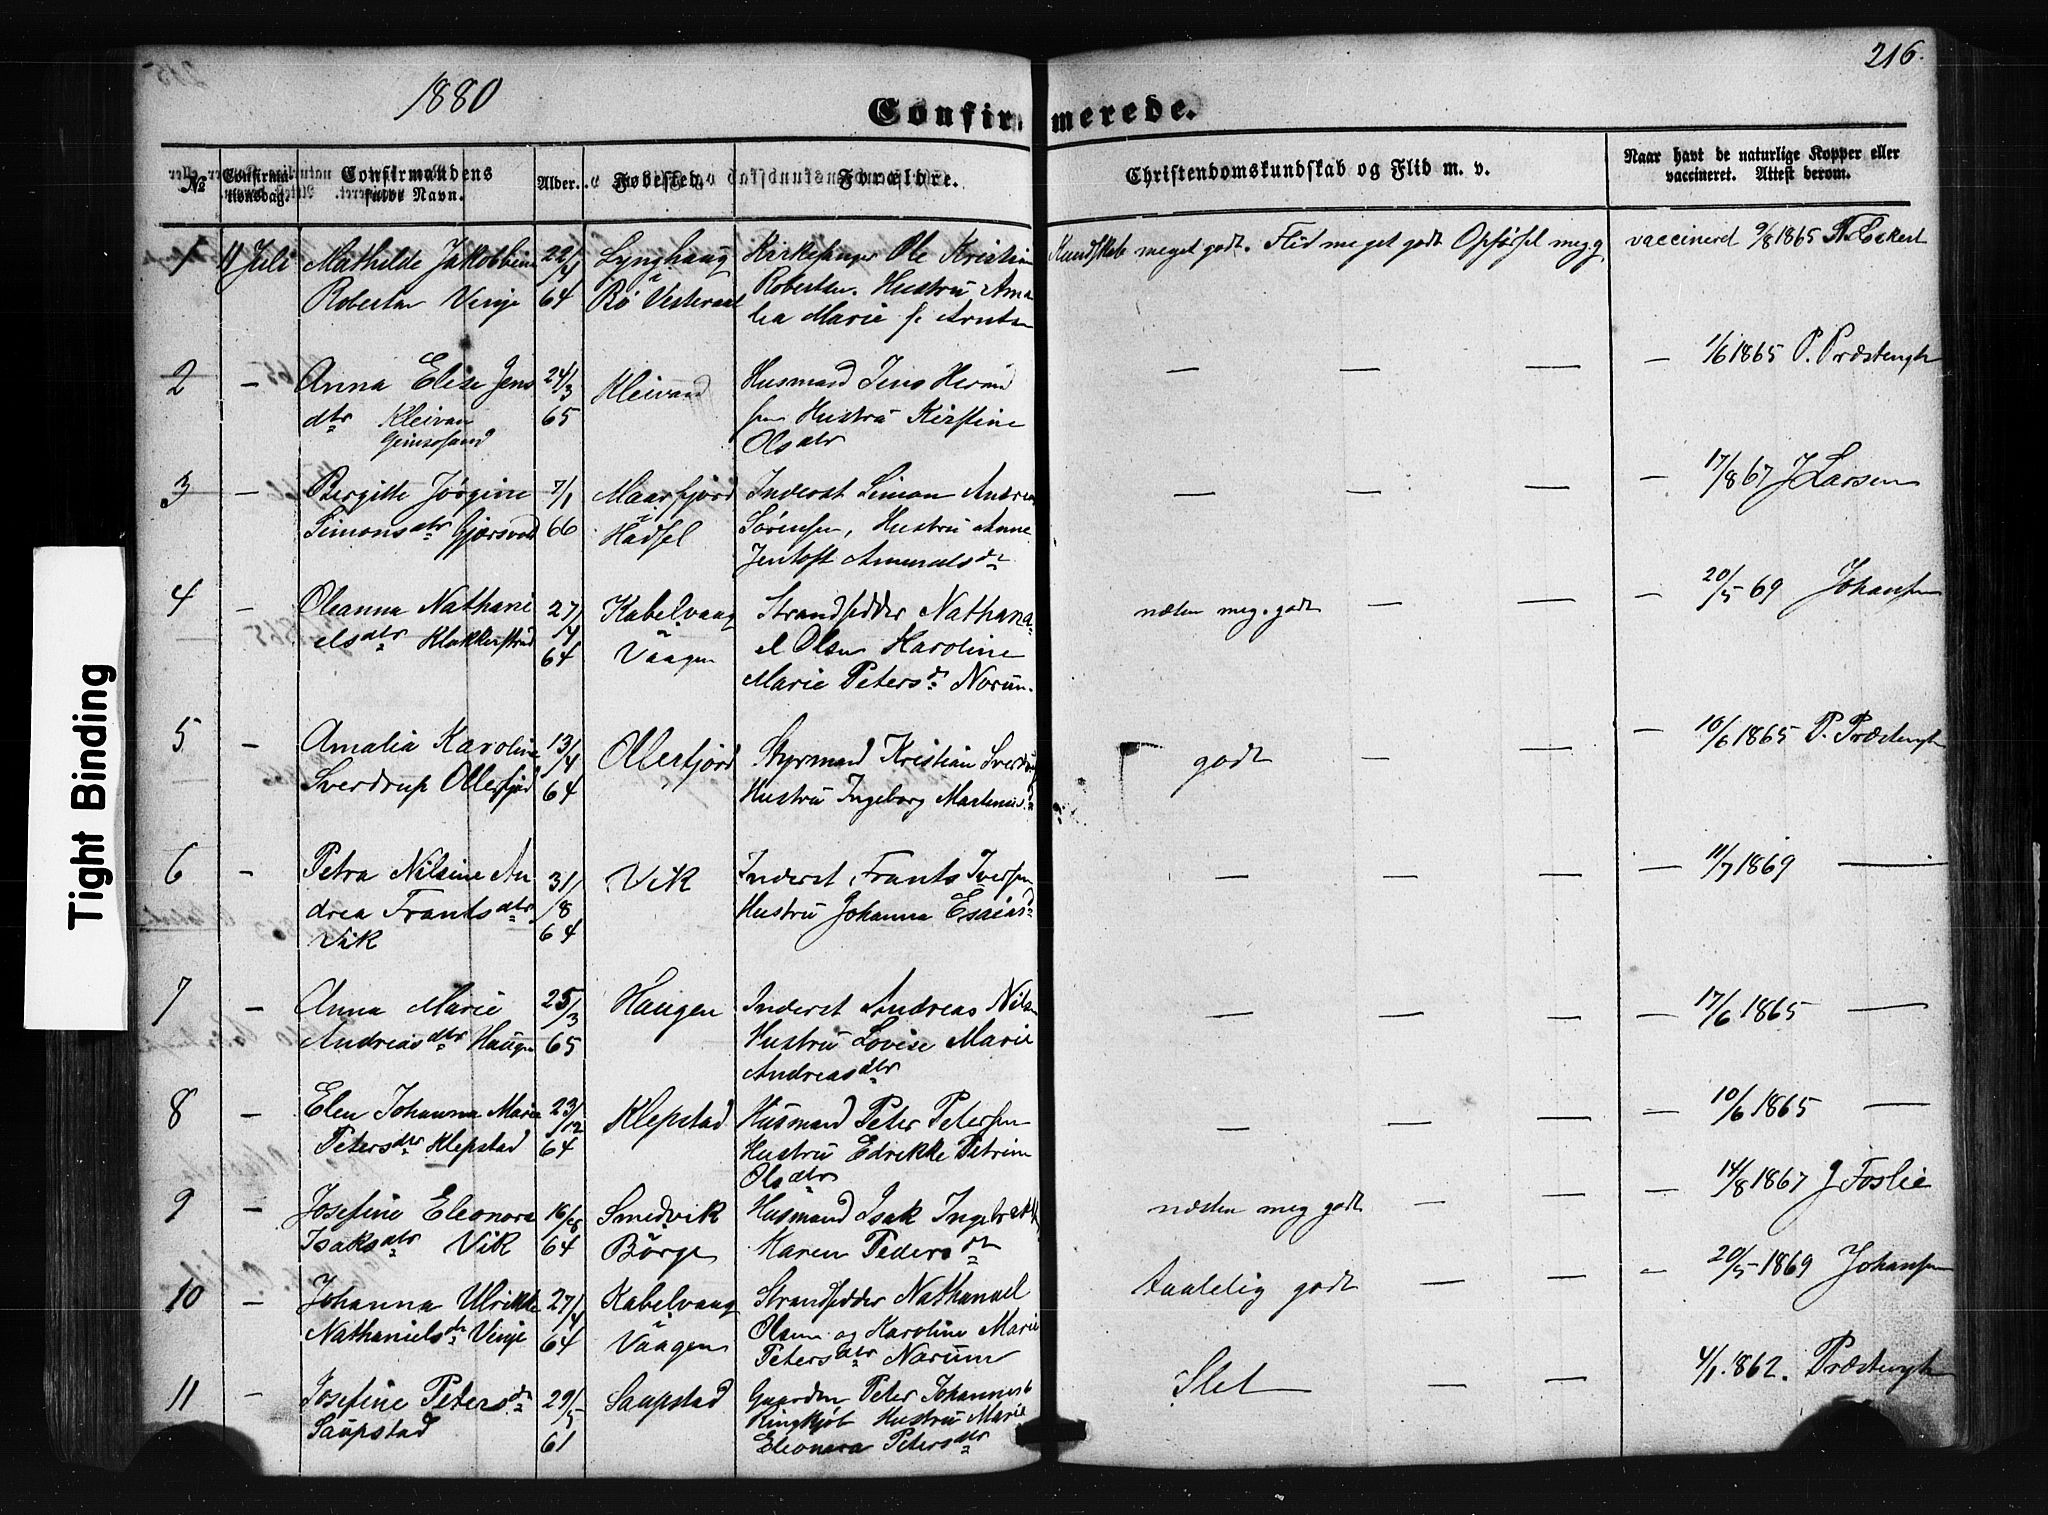 216.
1880
Confirmerede.
№
Confirmationsdag.
Confirmandens fulde Navn.
Alder.
Fødested.
Forældre.
Christendomskundskab og Flid m. v.
Naar havt de naturlige Kopper eller vaccineret. Attest derom.
1 11 Juli Mathilde Jakobbine 22/4 Lynghaug Kirkesanger Ole Kristian Kundskab meget godt. Flid meget godt Opførsel meg. g. vaccineret 9/8 1865
Robertsen Vinje 64 i Bø Vesteraal Robertsen. Hustru Ama
lia Marie f. Arntsen
2 — Anna Elise Jens 24/3 Kleivand Husmand Jens — — — — 1/6 1865 P. Præstengh
dtr Kleivan 65 Hustru Kirstine
Gimsøsand Olsdtr
3 — Bergitte Jørgine 7/1 Maarfjord Inderst Simon Andreas — — — — 17/8 67 J Larsen
Simonsdtr Gjærsvold 66 i Hadsel Sørensen, Hustru Anne
Jentoft Amundsdr
4 — Oleanna Nathani 27/4 Kabelvaag Strandsidder Nathana næsten meg. godt — — — 20/5 69 Johansen
elsdtr Klakkenstrand 64 i Vaagen el Olsen Karoline
Marie Petersdr Norum.
5 — Amalia Karoline 13/4 Ollerfjord Styrmand Kristian Sverdrup godt — — — 10/6 1865 P. Præstengh
Sverdrup Ollerfjord 64 Hustru Ingeborg
6 — Petra Nilsine An 31/8 Vik Inderst, Frants Iversen — — — — 11/7 1869 —
drea Frantsdtr 64 Hustru Johanna Esaiasd
Vik
7 — Anna Marie 25/3 Haugen Inderst Andreas Nilsen — — — — 17/6 1865 —
Andreasdtr Haugen 65 Hustru Lovise Marie
Andreasdtr
8 — Elen Johanna Marie 23/12 Klepstad Husmand Peter Petersen — — — — 10/6 1865 —
Petersdtr Klepstad 64 Hustru Edrikke Petrine
Olsdtr
9 — Josefine Eleonora 16/8 Smedvik Husmand Isak næsten meg godt — — — 14/8 1867 J Foslie
Isaksdtr Vik 64 Børge Karen Pedersdr
10 — Johanna Ulrikke 27/4 Kabelvaag Strandsidder Nathanael taalelig godt — — — 20/5 1869 Johansen
Nathanielsdr Vinje 64 i Vaagen Olsen og Karoline Marie
Petersdtr Norum
11 — Josefine Petersdr 29/5 Saupstad Gaardm Peter Johannes Slet — — 4/1. 1862. Præstengh
Saupstad 61 Ringkjøb Hustru Marie
Eleonora Petersdtr
Tight Binding